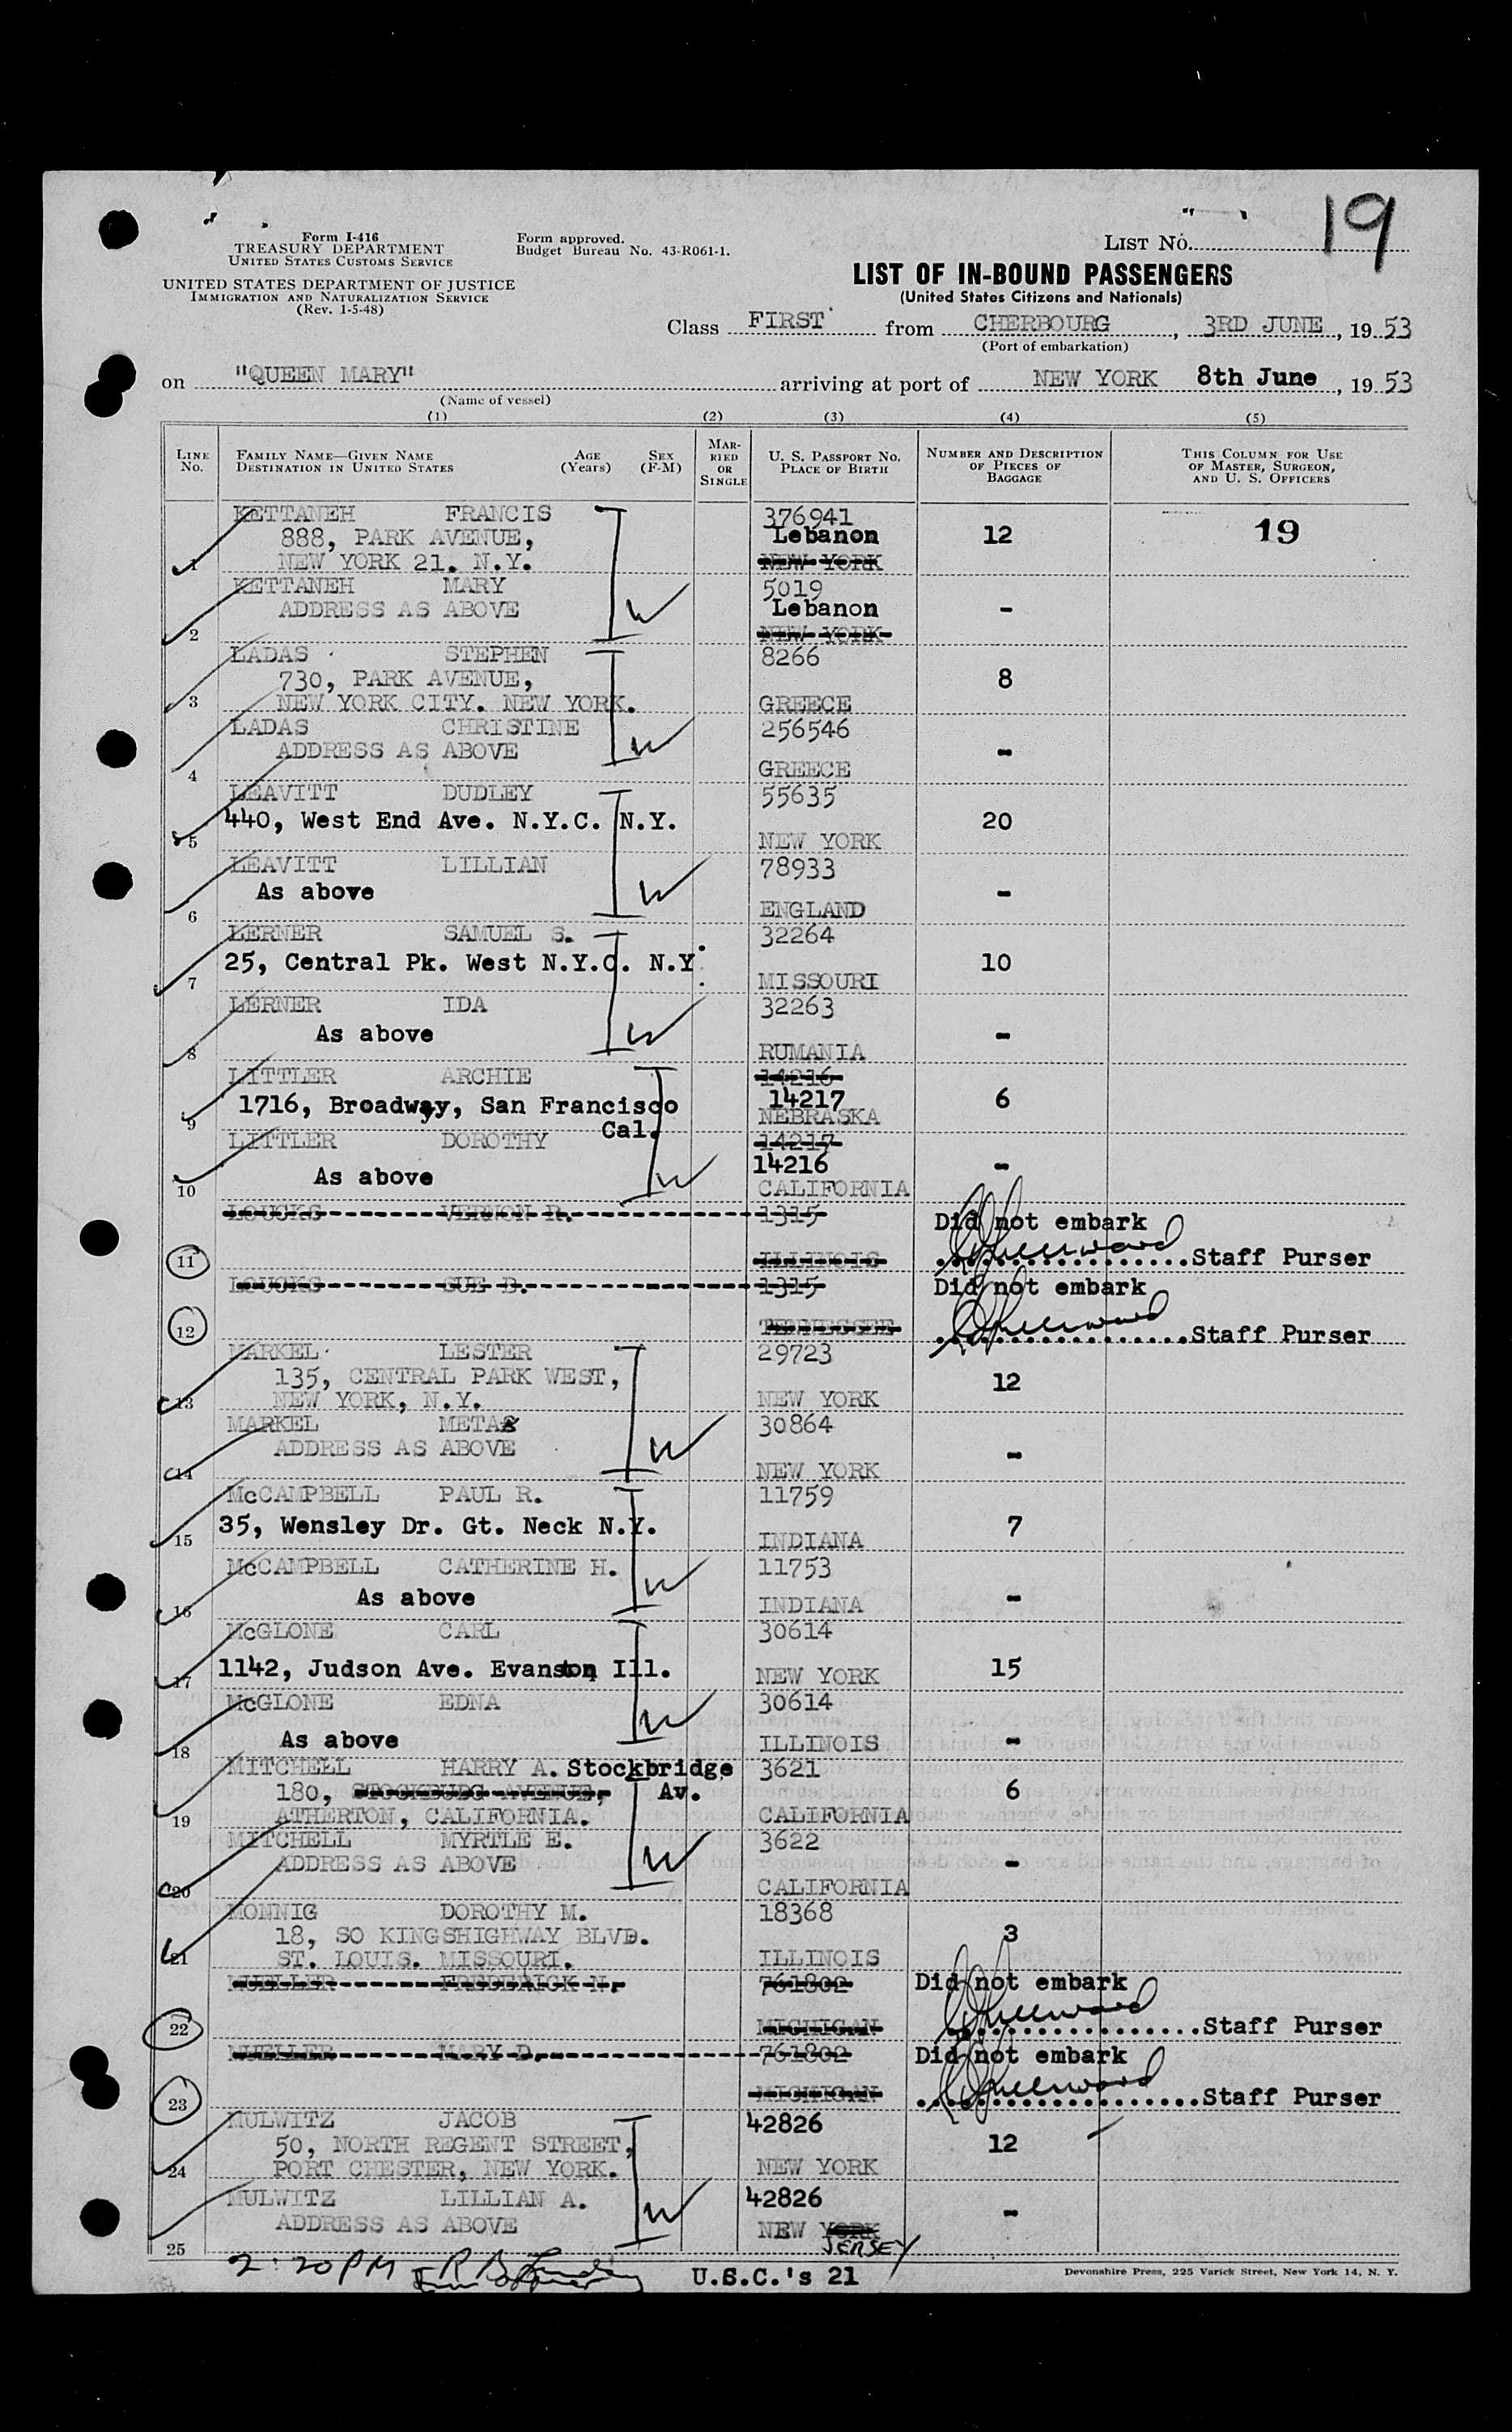 19
Form I-416
TREASURY DEPARTMENT
UNITED STATES CUSTOMS SERVICE
UNITED STATES DEPARTMENT OF JUSTICE
IMMIGRATION AND NATURALIZATION SERVICE
(Rev. 1-5-48)
Form approved.
Budget Bureau No. 43-R061-1.
LIST NO.
LIST OF IN-BOUND PASSENGERS
(United States Citizens and Nationals)
Class FIRST from CHERBOURG, 3RD JUNE, 19 53
(Port of embarkation)
on "QUEEN MARY" arriving at port of NEW YORK 8th June, 19 53
(Name of vessel)
(1) (2) (3) (4) (5)
LINE NO. FAMILY NAME—GIVEN NAME DESTINATION IN UNITED STATES AGE (Years) SEX (F-M) MARRIED OR SINGLE U. S. PASSPORT NO. PLACE OF BIRTH NUMBER AND DESCRIPTION OF PIECES OF BAGGAGE THIS COLUMN FOR USE OF MASTER, SURGEON, AND U. S. OFFICERS
KETTANEH FRANCIS 376941
888, PARK AVENUE, Lebanon 12 19
1 NEW YORK 21. N.Y. NEW YORK
KETTANEH MARY 5019
ADDRESS AS ABOVE Lebanon -
2 NEW YORK
LADAS STEPHEN 8266
730, PARK AVENUE, 8
3 NEW YORK CITY. NEW YORK. GREECE
LADAS CHRISTINE 256546
ADDRESS AS ABOVE -
4 GREECE
LEAVITT DUDLEY 55635
440, West End Ave. N.Y.C. N.Y. 20
5 NEW YORK
LEAVITT LILLIAN 78933
As above -
6 ENGLAND
LERNER SAMUEL S. 32264
25, Central Pk. West N.Y.C. N.Y. 10
7 MISSOURI
LERNER IDA 32263
As above -
8 RUMANIA
LITTLER ARCHIE 14216
1716, Broadway, San Francisco 14217 6
9 Cal. NEBRASKA
LITTLER DOROTHY 14217
As above 14216 -
10 CALIFORNIA
LOUCKS VERNON R. 1315 Did not embark
11 ILLINOIS Staff Purser
LOUCKS SUE D. 1315 Did not embark
12 TENNESSEE Staff Purser
MARKEL LESTER 29723
135, CENTRAL PARK WEST, 12
13 NEW YORK, N.Y. NEW YORK
MARKEL META 30864
ADDRESS AS ABOVE -
14 NEW YORK
McCAMPBELL PAUL R. 11759
35, Wensley Dr. Gt. Neck N.Y. 7
15 INDIANA
McCAMPBELL CATHERINE H. 11753
As above -
16 INDIANA
McGLONE CARL 30614
1142, Judson Ave. Evanston Ill. 15
17 NEW YORK
McGLONE EDNA 30614
As above -
18 ILLINOIS
MITCHELL HARRY A. Stockbridge 3621
180, Av. 6
19 ATHERTON, CALIFORNIA. CALIFORNIA
MITCHELL MYRTLE E. 3622
ADDRESS AS ABOVE -
20 CALIFORNIA
MONNIG DOROTHY M. 18368
18, SO KINGSHIGHWAY BLVD. 3
21 ST. LOUIS. MISSOURI. ILLINOIS
MUELLER FREDERICK N. 761802 Did not embark
22 MICHIGAN Staff Purser
MUELLER MARY D. 761802 Did not embark
23 MICHIGAN Staff Purser
MULWITZ JACOB 42826
50, NORTH REGENT STREET, 12
24 PORT CHESTER, NEW YORK. NEW YORK
MULWITZ LILLIAN A. 42826
ADDRESS AS ABOVE NEW YORK -
25 JERSEY
2:20 PM U.S.C.'s 21
Devonshire Press, 225 Varick Street, New York 14, N. Y.